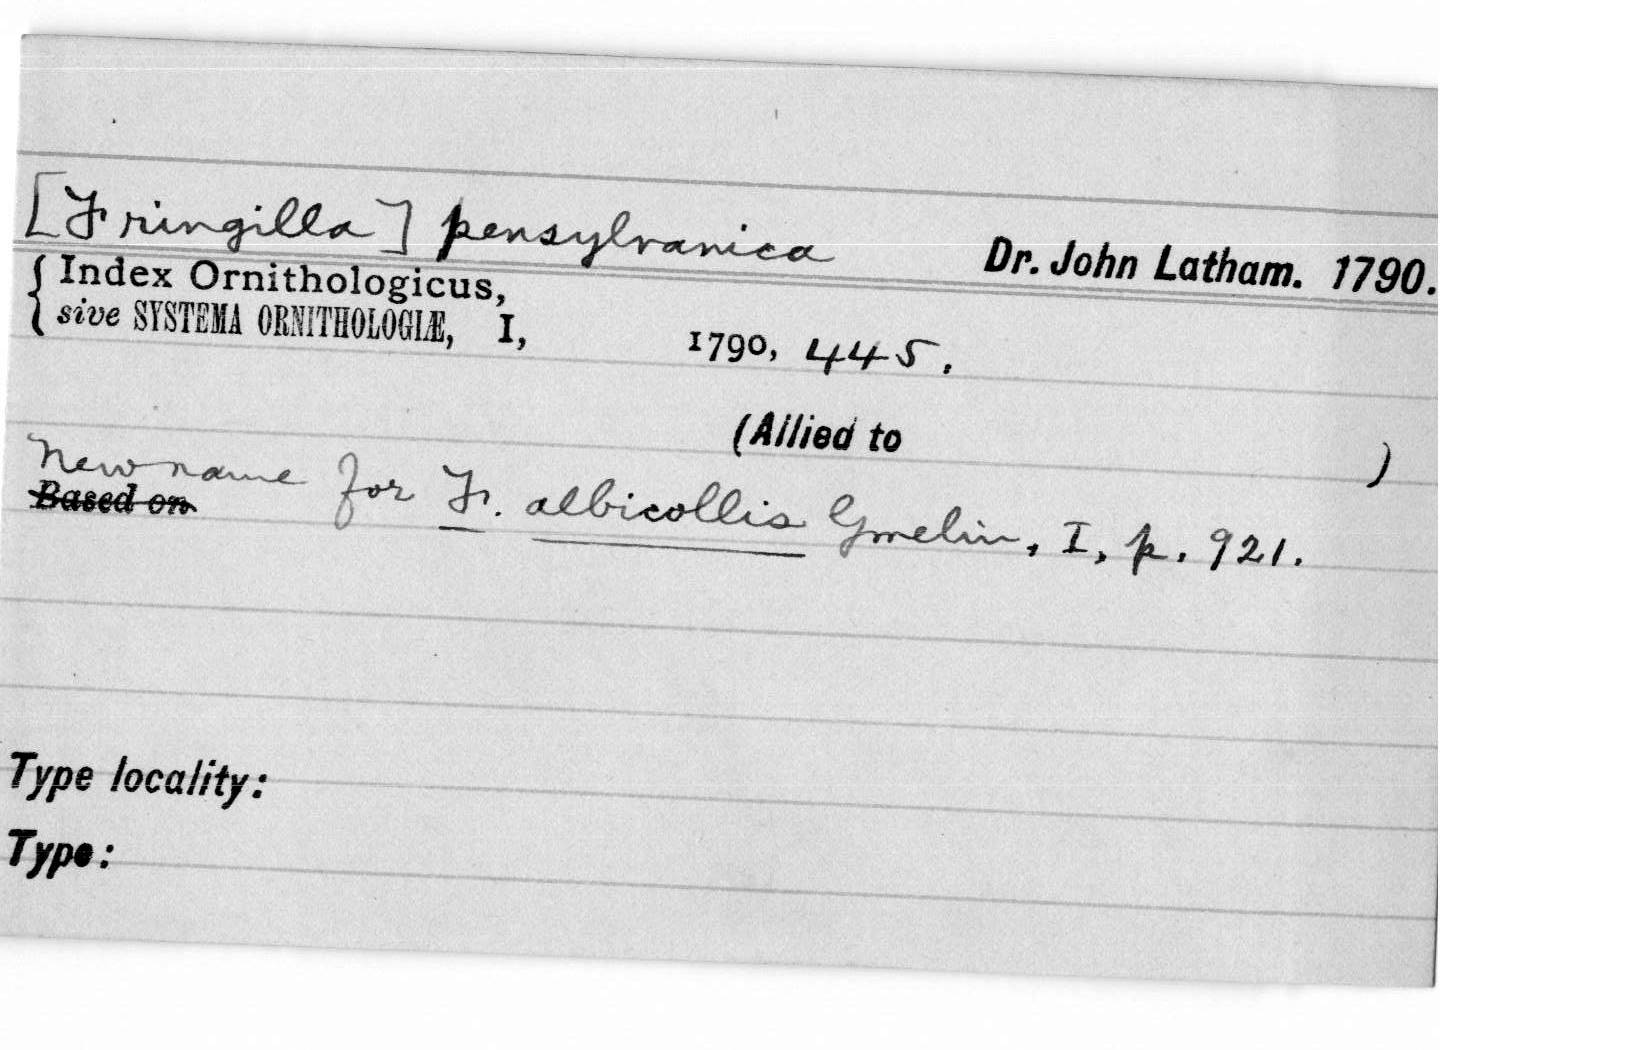 [Fringilla] pensylvanica Dr. John Latham. 1790.
Index Ornithologicus,
sive SYSTEMA ORNITHOLOGIÆ, I, 1790, 445.
(Allied to )
New name for F. albicollis Gmelin, I, p. 921.
Based on
Type locality:
Type: